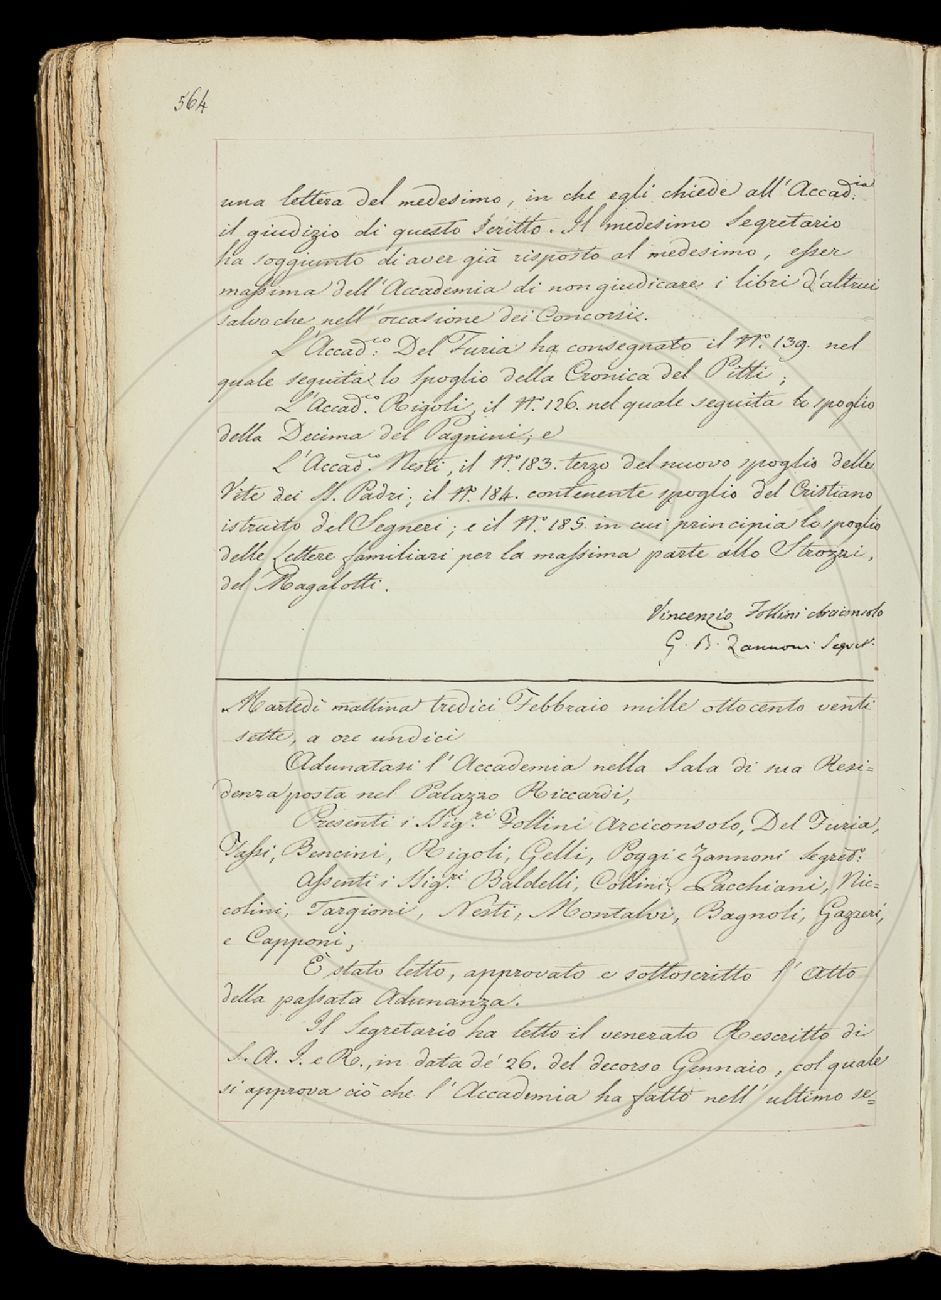 564
una lettera del medesimo, in che egli chiede all'Accad.ia
il giudizio di questo scritto. Il medesimo Segretario
ha soggiunto di aver già risposto al medesimo, esser
massima dell'Accademia di non giudicare i libri d'altrui
salvo che nell'occasione dei Concorsi.
L'Accad.co Del Furia ha consegnato il N.o 139. nel
quale seguita lo spoglio della Cronica del Pitti;
L'Accad.co Rigoli, il N.o 126. nel quale seguita lo spoglio
della Decima del Pagnini; e
L'Accad.co Nesti, il N.o 183. terzo del nuovo spoglio delle
Vite dei SS. Padri; il N.o 184. contenente spoglio del Cristiano
istruito del Segneri; e il N.o 185. in cui principia lo spoglio
delle Lettere familiari per la massima parte allo Strozzi,
del Magalotti.
Vincenzio Follini Arciconsolo
G. B. Zannoni Segret.
Martedì mattina tredici Febbraio mille ottocento venti
sette, a ore undici
Adunatasi l'Accademia nella Sala di sua Resi=
denza posta nel Palazzo Riccardi,
Presenti i Sig.ri Follini Arciconsolo, Del Furia,
Fassi, Bencini, Rigoli, Gelli, Poggi e Zannoni Segret.o
Assenti i Sig.ri Baldelli, Collini, Pacchiani, Nic=
colini, Targioni, Nesti, Montalvi, Bagnoli, Gazzeri,
e Capponi;
È stato letto, approvato e sottoscritto l'Atto
della passata Adunanza.
Il Segretario ha letto il venerato Rescritto di
S. A. I. e R., in data de' 26. del decorso Gennaio, col quale
si approva ciò che l'Accademia ha fatto nell'ultimo se=